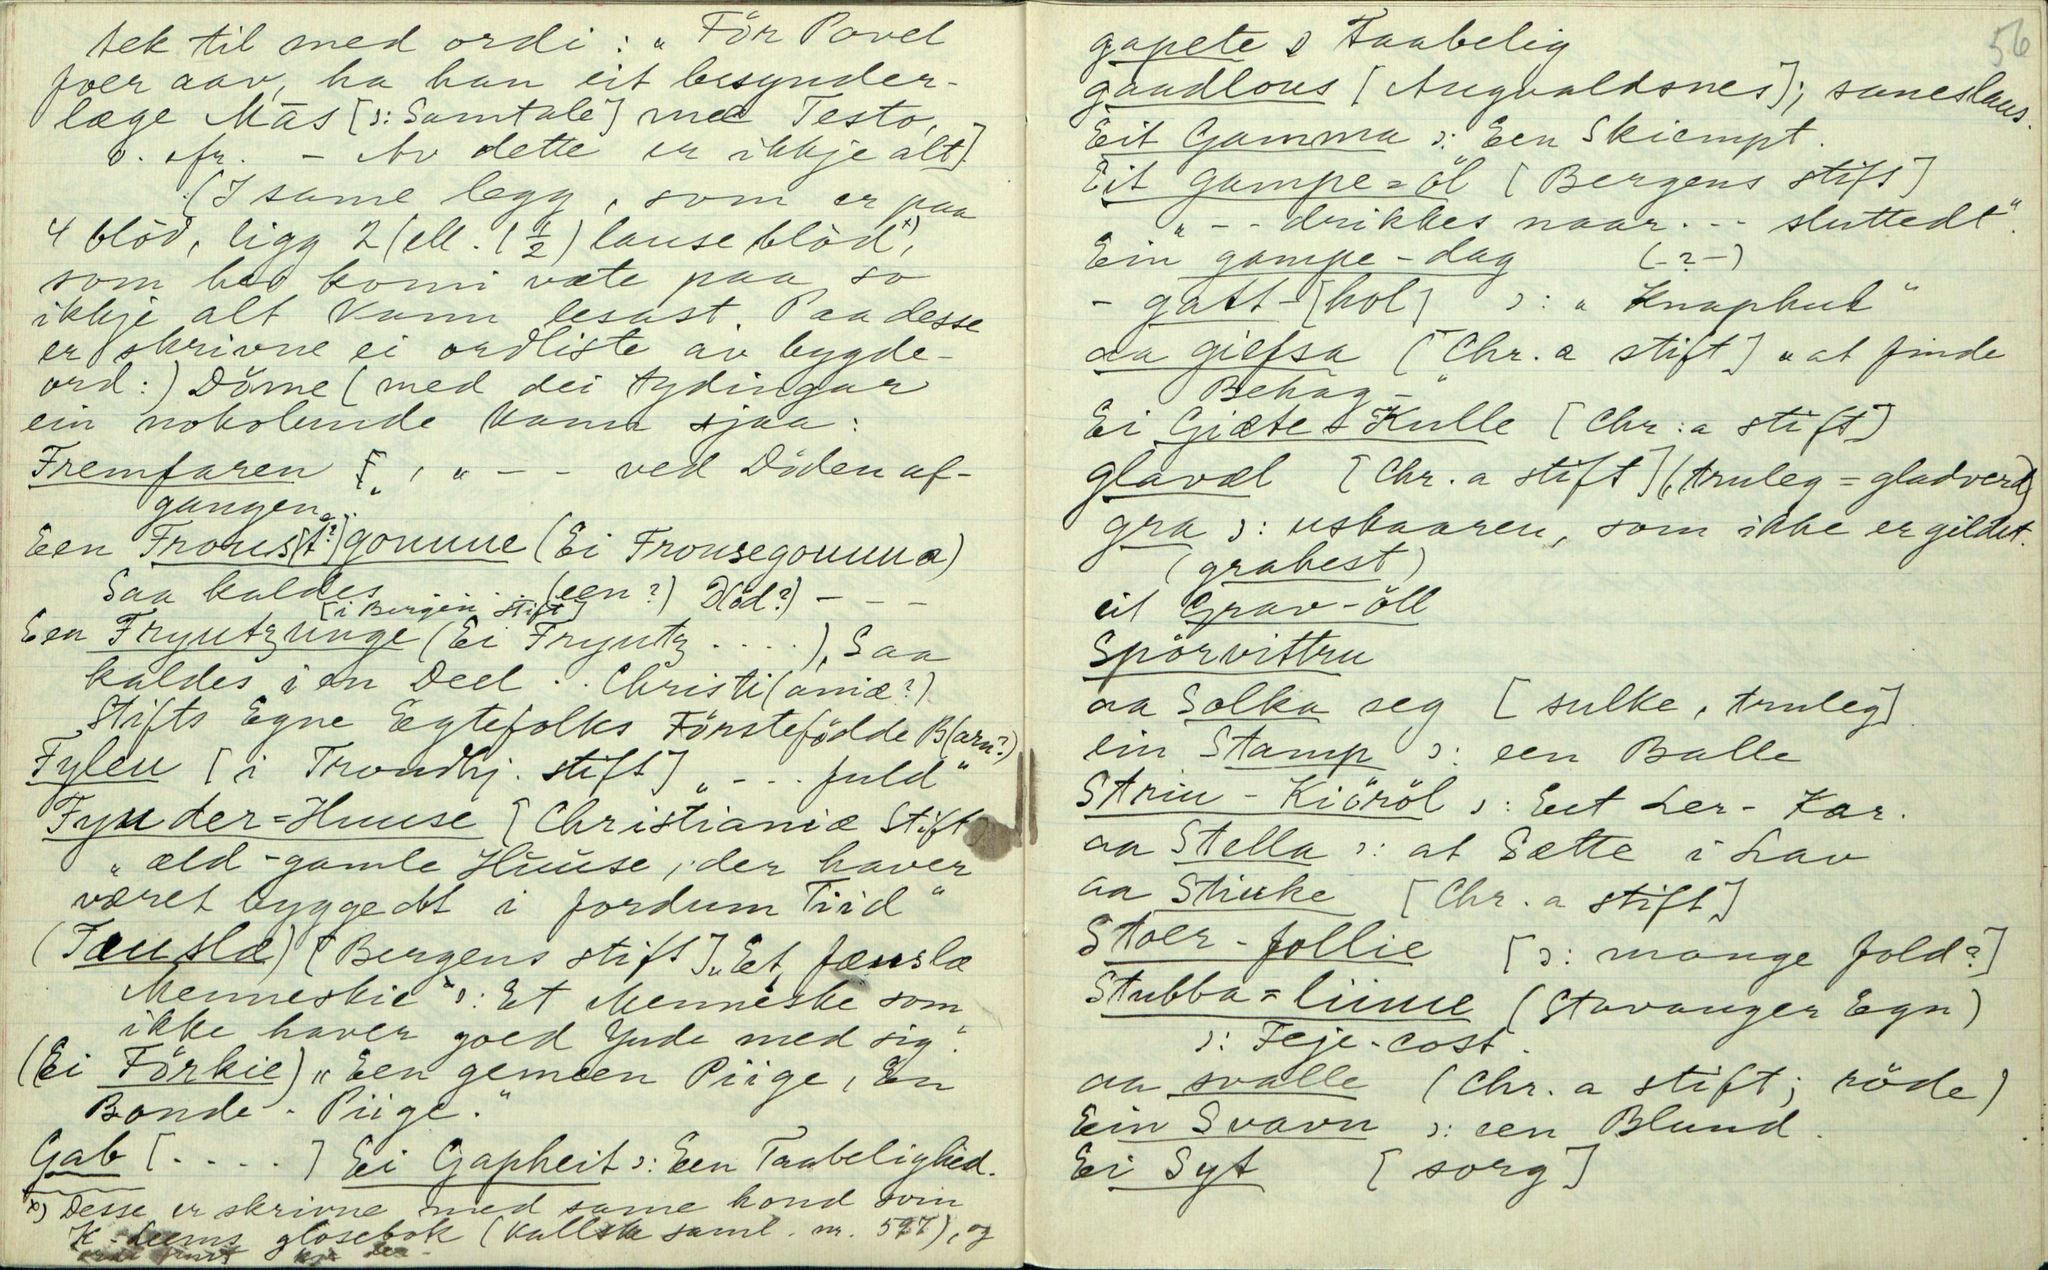 tek til med ordi: „För Povel
foer aav, ha han eit besynder-
læge Mās [ɔ: Samtale] med Testo,
o. s fr. – Av dette er ikkje alt].
(I same legg, som er paa
4 blöd, ligg 2 (ell. 1 ½) lause blöd x),
som hev komi væte paa so
ikkje alt kann lesast. Paa desse
er skrivne ei ordliste av bygde-
ord:) Döme (med dei tydingar
ein nokolunde kann sjaa:
Fremfaren , „ – – ved Döden af-
gangen“.
Een Frous[t?]gouuue (Ei Frousegouuua)
Saa kaldes . . (een?) D(öd?) – – –
[i Bergen Stift]
Een Fryutzunge (Ei Fryutz . . . .), Saa
kaldes i en Deel . . Christi(aniæ?)
Stifts Egne Egtefolks Förstefödde B(arn?)
Fylen [i Trondhj. stift] „ – . . fuld“
Fynder=Huuse [Christianiæ Stift]
„æld-gamle Huuse, der haver
været byggedt i fordum Tiid“
(Fæuslæ) [Bergens stift] „Et fæuslæ
Menneskie“ ɔ: Et Menneske som
ikke haver goed Yude med sig“.
(Ei Förkie) „Een gemeen Piige, En
Bonde-Piige.“
Gab [. . . .] Ei Gapheit ɔ: Een Taabelighed.
x) Desse er skrivne med same hond som
K. Leems glosebok (Kallske saml. nr. 597), og
56
gapete ɔ Taabelig
gaadlous [Augvaldsnes]; sanseslaus.
Eit Gamma ɔ: Een Skiempt.
Eit gampe=öl [Bergens stift]
„ – – drikkes naar . – – sluttedt“.
Ein gampe-dag (–?–)
– gatt–[hol] ɔ: „Knaphul“
aa giefsa [Chr.a stift] „at finde
Behag–“
Ei Giæte Kulle [Chr:a stift]
glavæl [Chr.a stift] (truleg = gladverd)
gra ɔ: uskaaren, som ikke er gildet.
(grahest)
eit Grav-öll
Spörvittru
aa Solka seg [sulke, truleg]
ein Stamp ɔ: een Balle
Striu-Kiöröl ɔ: Eet Ler-Kar.
aa Stella ɔ: at Sætte i Lav
aa Stiuke [Chr.a stift]
Stoer-follie [ɔ: mange fold?]
Stubba=liime (Stavanger Egn)
ɔ: Feje-cost.
aa svalle (Chr.a stift; röde)
Ein Svavn ɔ: een Blund.
Ei Syt [sorg]